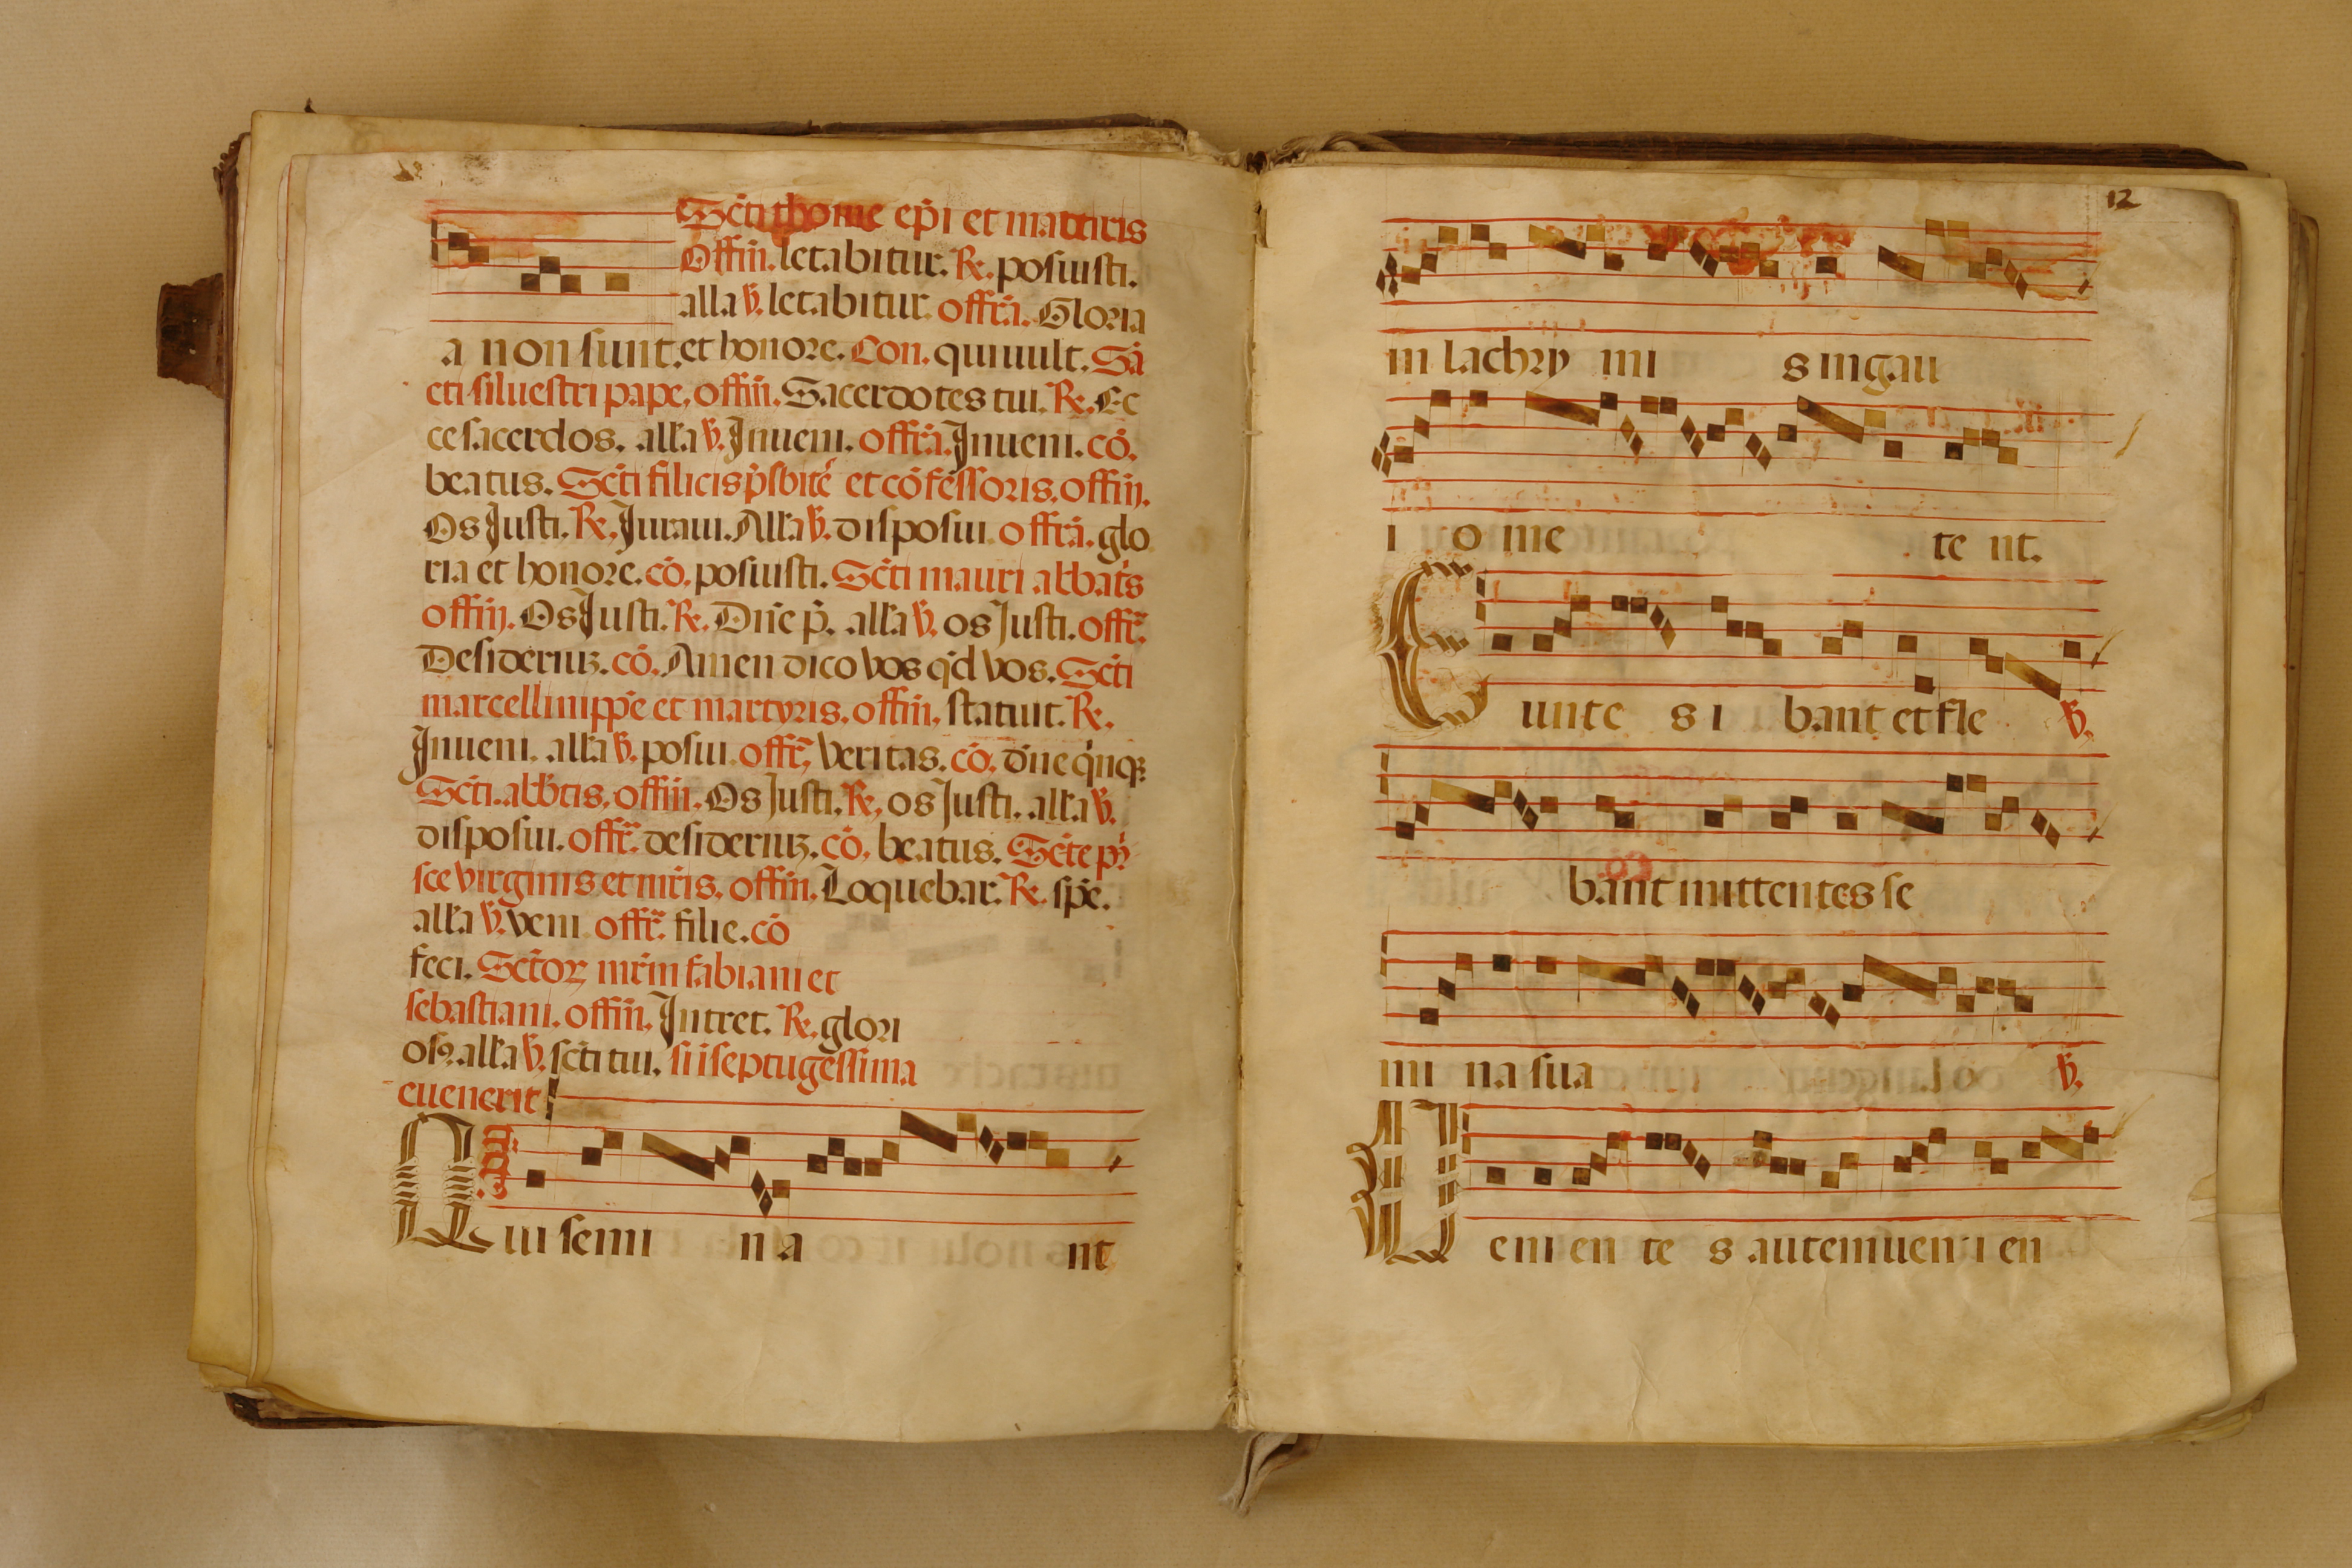 Scti thome epi et martiris
Offm. letabitur. R. posuisti.
alla v. letabitur. offra. Gloria
a non sunt. et honore. Con. qui uult. Sā
cti siluestri pape, offm. Sacerdotes tui. R. Ec
ce sacerdos. alla v. Inueni. offra. Inueni. cō.
beatus. Scti filicis psbite et cōfessoris. offm.
Os Justi. R. Juraui. Alla v. disposui offra. glo
ria et honore. cō. posuisti. Scti mauri abbats
offm. Os Justi. R. Dñe p. alla v. os Justi. offr.
Desideriuz. cō. Amen dico vos qd vos. Scti
marcelli mppe et martyris. offm, statuit. R.
Inueni. alla v. posui offr, veritas. cō. dñe qnq3
Scti. abbtis, offm. Os Justi. R, os Justi. alla v.
disposui. offr. desideriuz. cō, beatus. Scte pi
sce virginis et mris, offm, Loquebar. R. spe.
alla v. veni offr. filie. cō
feci. Sctor mrm fabiani et
sebastiani. offm, Intret. R. glori
os9. alla v. scti tui. si septugessima
euenerit
Qui semi na nt
12
in lachry mi s in gau
i o me te nt.
Eunte s i bant et fle v.
bant mittentes se
mi na sua v.
Ueni en te s autem uen i en